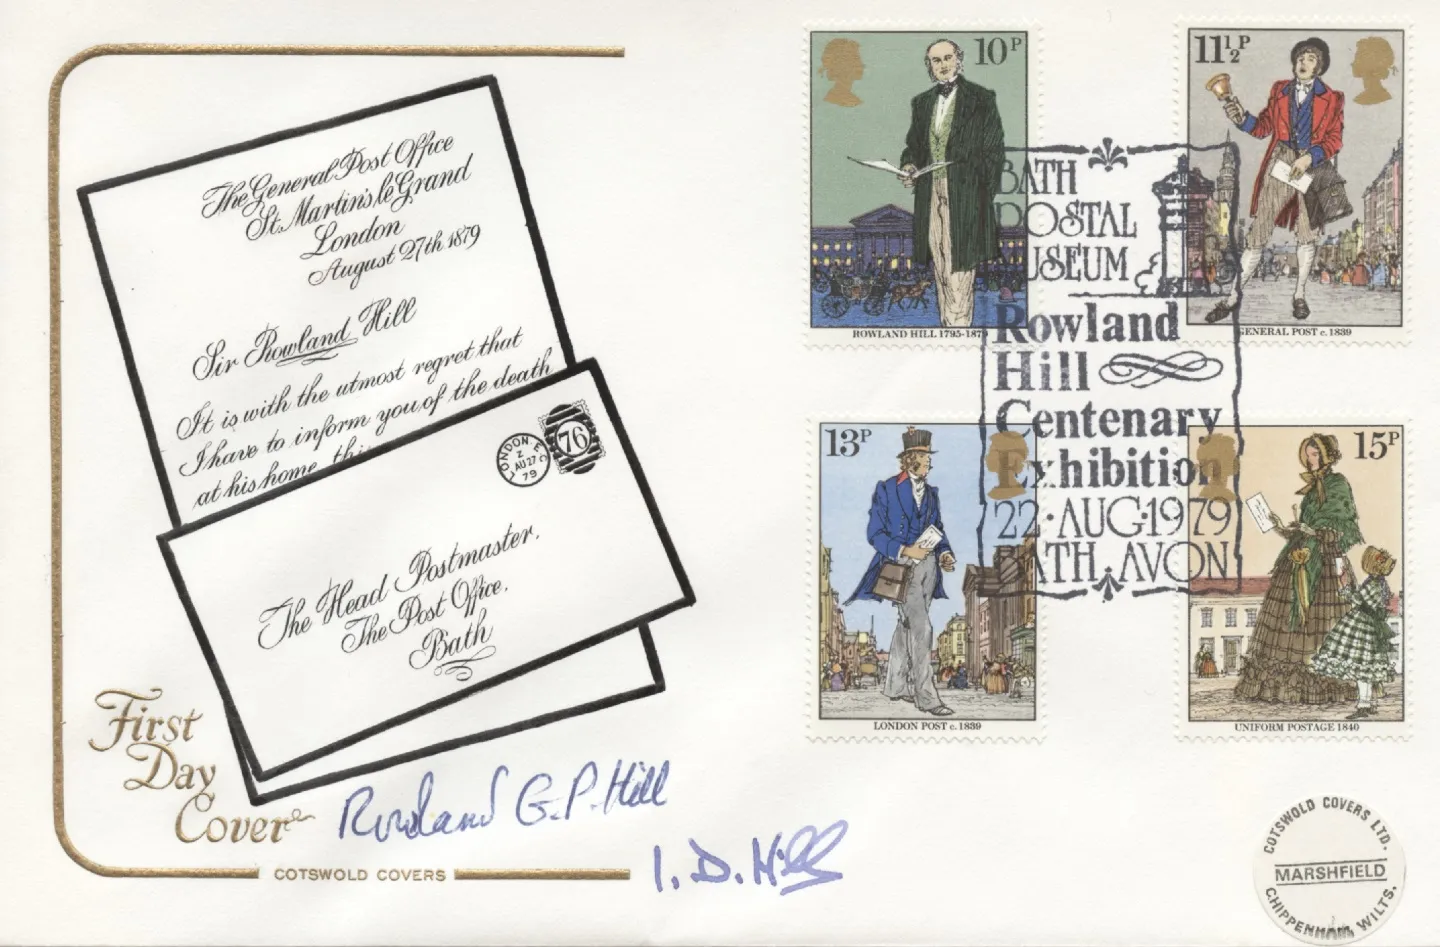 The General Post Office
St. Martin's le Grand
London
August 27th 1879
Sir Rowland Hill
It is with the utmost regret that
I have to inform you of the death
at his home, this
LONDON E.C
Z
AU27
79
76
The Head Postmaster,
The Post Office,
Bath
First
Day
Cover
COTSWOLD COVERS
Rowland G.P. Hill
I. D. Hill
10P
ROWLAND HILL 1795-1879
11½P
GENERAL POST c. 1839
13P
LONDON POST c. 1839
15P
UNIFORM POSTAGE 1840
BATH
POSTAL
MUSEUM
Rowland
Hill
Centenary
Exhibition
22·AUG·1979
BATH, AVON
COTSWOLD COVERS LTD.
MARSHFIELD
CHIPPENHAM WILTS.